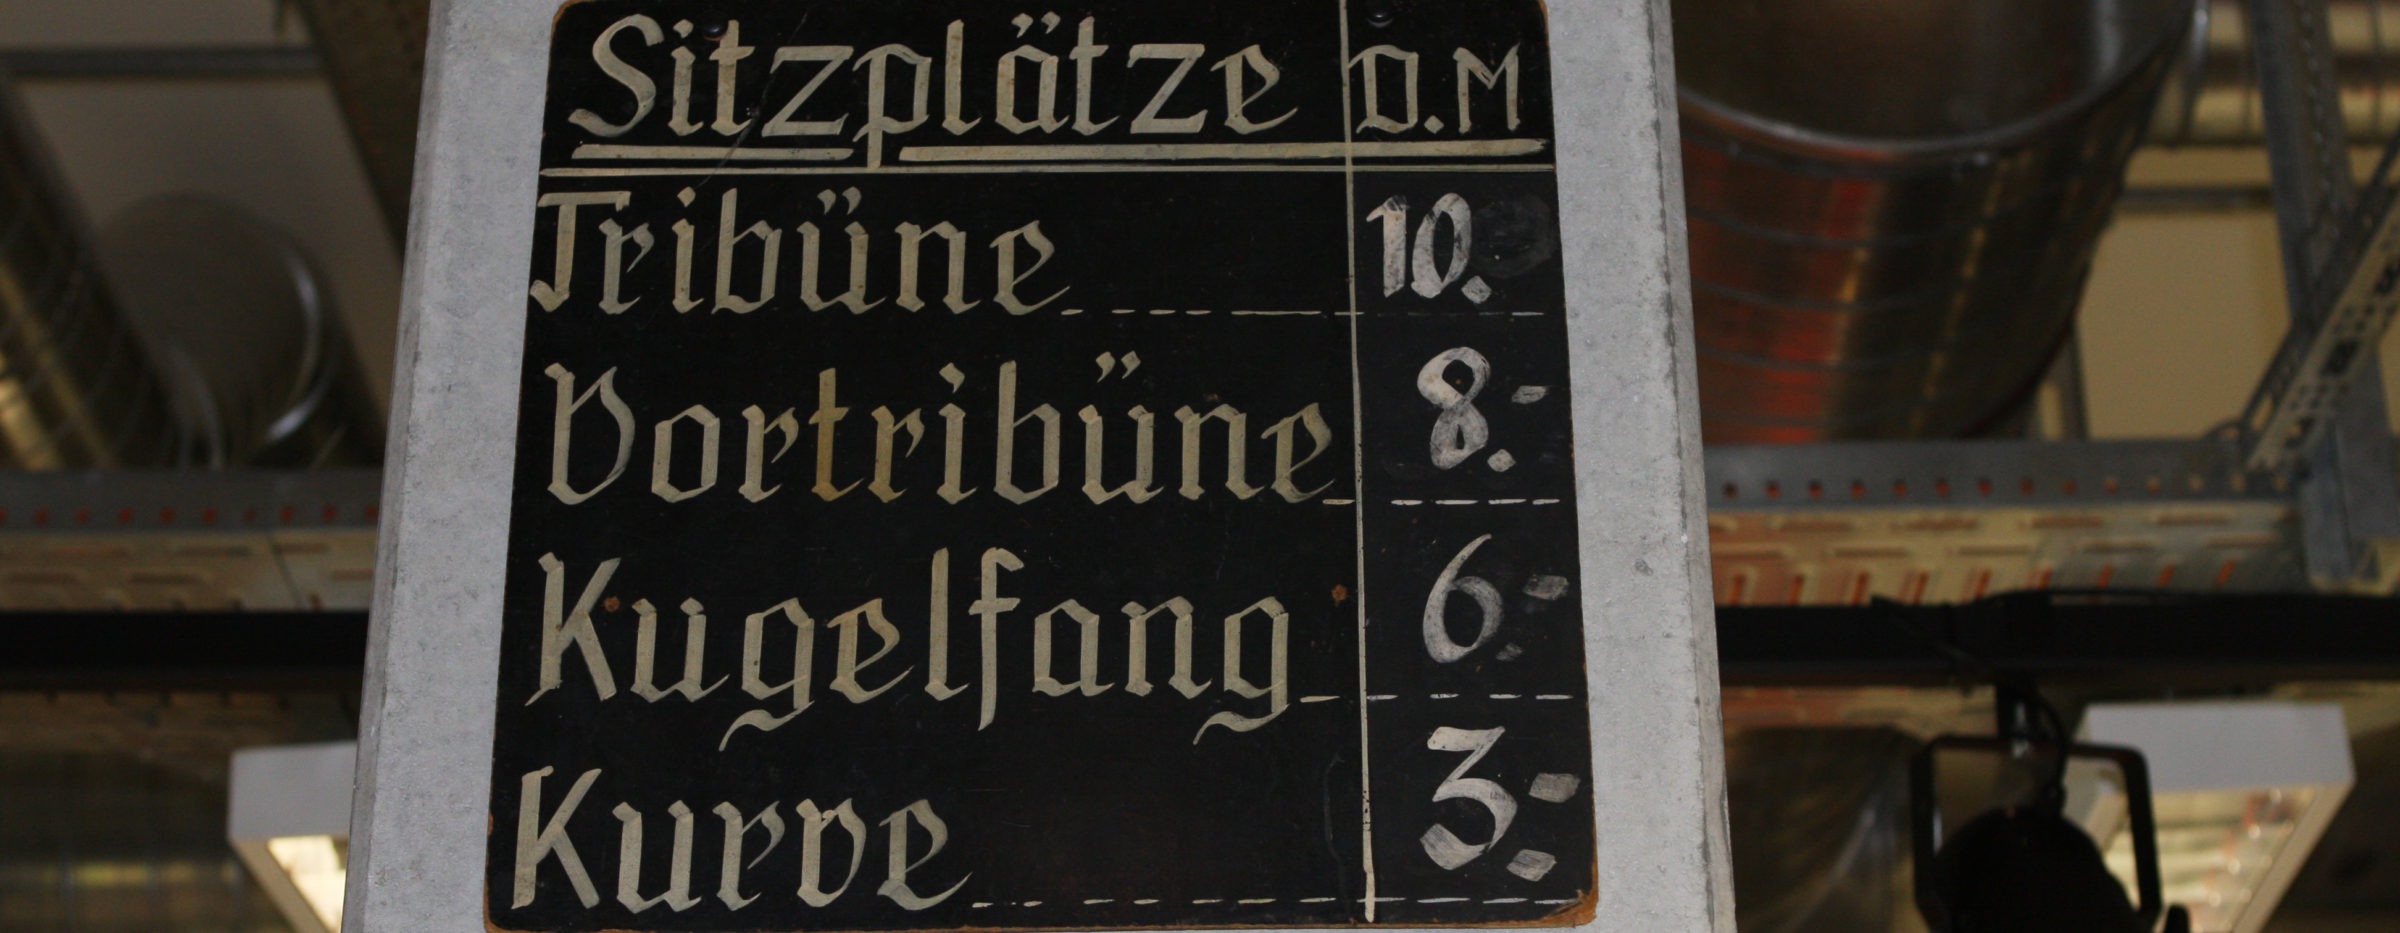 Sitzplätze D.M
Tribüne 10.
Vortribüne 8.-
Kugelfang 6.-
Kurve 3.-